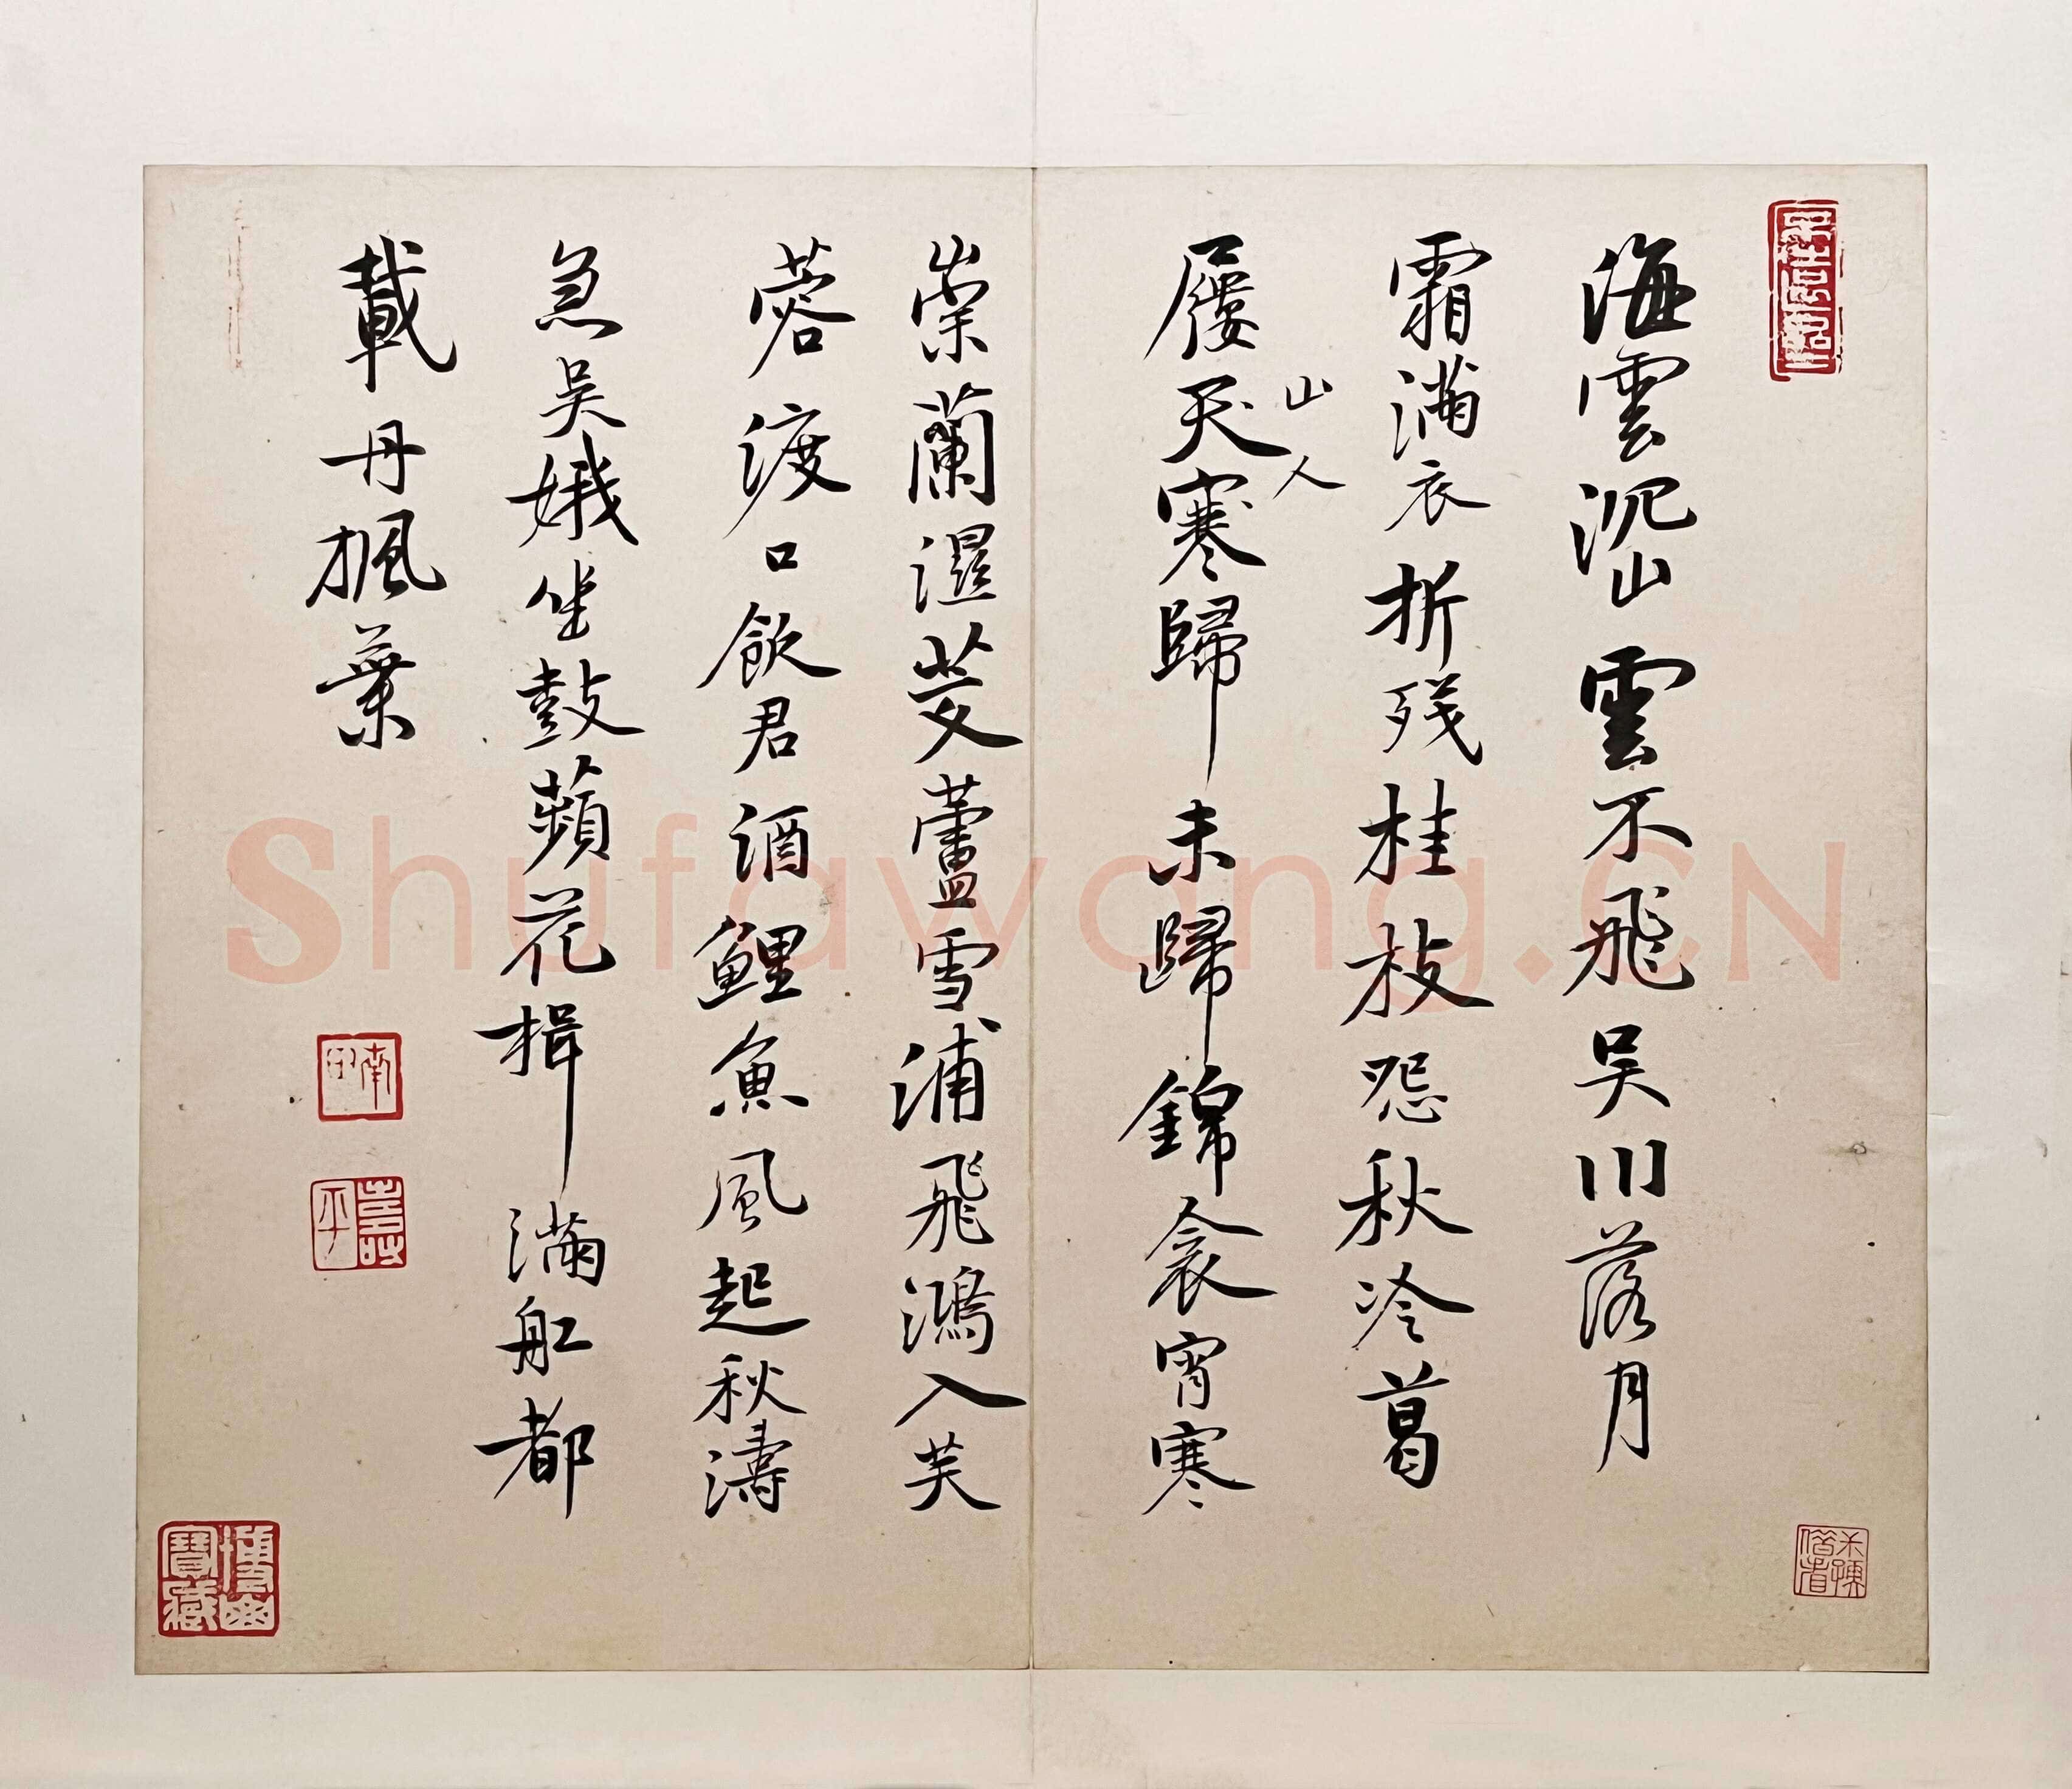 海雲沉山雲不飛吳川落月
霜滿衣折殘桂枝怨秋冷葛
屨天寒歸未歸錦衾宵寒
山人
崇蘭濕芰蘆雪浦飛鴻入芙
蓉渡口飲君酒鯉魚風起秋濤
急吳娥坐鼓蘋花楫滿舡都
載丹楓葉
南田
壽平
Shufawang.CN